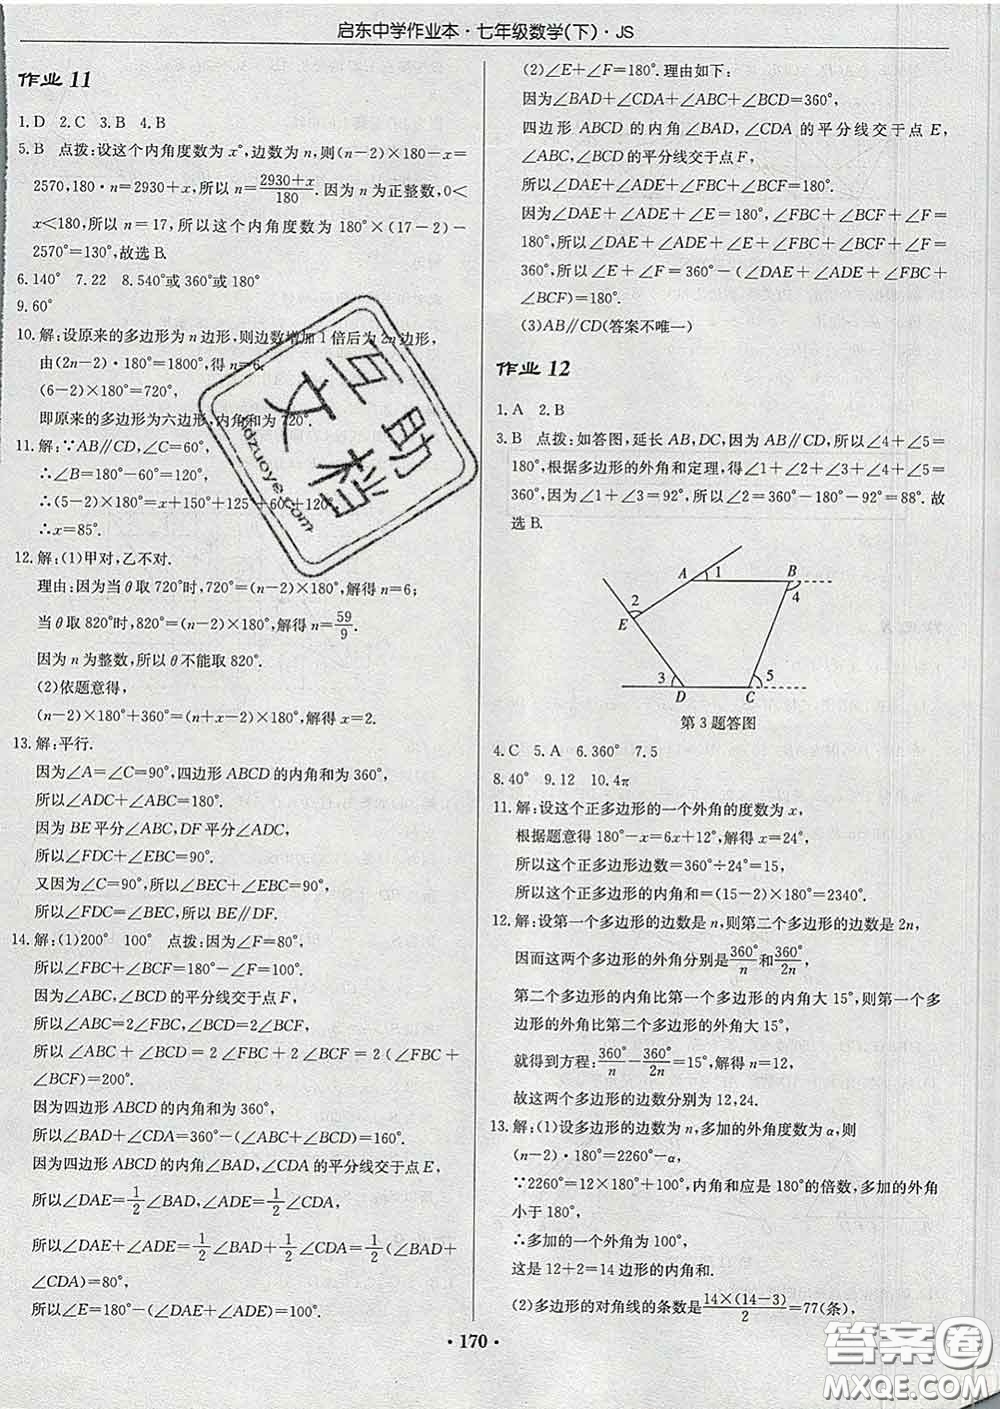 启东中学作业本·七年级数学(下)·JS
作业 11
1.D 2.C 3.B 4.B
5.B 点拨:设这个内角度数为 x°,边数为 n,则(n−2)×180−x=
2570,180·n=2930+x,所以 n=(2930+x)/180.因为 n 为正整数,0<
x<180,所以 n=17,所以这个内角度数为 180°×(17−2)−
2570°=130°,故选B.
6.140° 7.22 8.540°或 360°或 180°
9.60°
10.解:设原来的多边形为 n 边形,则边数增加 1 倍后为 2n 边形,
由(2n−2)·180°=1800°,得 n=6.
(6−2)×180°=720°,
即原来的多边形为六边形,内角和为 720°.
11.解:∵AB∥CD,∠C=60°,
∴∠B=180°−60°=120°,
∴(5−2)×180°=x+150°+125°+60°+120°,
∴x=85°.
12.解:(1)甲对,乙不对.
理由:因为当 θ 取 720°时,720°=(n−2)×180°,解得 n=6;
当 θ 取 820°时,820°=(n−2)×180°,解得 n=59/9.
因为 n 为整数,所以 θ 不能取 820°.
(2)依题意得,
(n−2)×180°+360°=(n+x−2)×180°,解得 x=2.
13.解:平行.
因为∠A=∠C=90°,四边形 ABCD 的内角和为 360°,
所以∠ADC+∠ABC=180°.
因为 BE 平分∠ABC,DF 平分∠ADC,
所以∠FDC+∠EBC=90°.
又因为∠C=90°,所以∠BEC+∠EBC=90°,
所以∠FDC=∠BEC,所以 BE∥DF.
14.解:(1)200° 100° 点拨:因为∠F=80°,
所以∠FBC+∠BCF=180°−∠F=100°.
因为∠ABC,∠BCD 的平分线交于点 F,
所以∠ABC=2∠FBC,∠BCD=2∠BCF,
所以∠ABC+∠BCD=2∠FBC+2∠BCF=2(∠FBC+
∠BCF)=200°.
因为四边形 ABCD 的内角和为 360°,
所以∠BAD+∠CDA=360°−(∠ABC+∠BCD)=160°.
因为四边形 ABCD 的内角∠BAD,∠CDA 的平分线交于点 E,
所以∠DAE=1/2∠BAD,∠ADE=1/2∠CDA,
所以∠DAE+∠ADE=1/2∠BAD+1/2∠CDA=1/2(∠BAD+
∠CDA)=80°,
所以∠E=180°−(∠DAE+∠ADE)=100°.
(2)∠E+∠F=180°.理由如下:
因为∠BAD+∠CDA+∠ABC+∠BCD=360°,
四边形 ABCD 的内角∠BAD,∠CDA 的平分线交于点 E,
∠ABC,∠BCD 的平分线交于点 F,
所以∠DAE+∠ADE+∠FBC+∠BCF=180°.
因为∠DAE+∠ADE+∠E=180°,∠FBC+∠BCF+∠F=
180°,所以∠DAE+∠ADE+∠E+∠FBC+∠BCF+∠F=
360°,所以∠E+∠F=360°−(∠DAE+∠ADE+∠FBC+
∠BCF)=180°.
(3)AB∥CD(答案不唯一)
作业 12
1.A 2.B
3.B 点拨:如答图,延长 AB,DC,因为 AB∥CD,所以∠4+∠5=
180°,根据多边形的外角和定理,得∠1+∠2+∠3+∠4+∠5=
360°,因为∠1+∠3=92°,所以∠2=360°−180°−92°=88°.故
选 B.
A 1 B
4
2
E
3 5
D C
第 3 题答图
4.C 5.A 6.360° 7.5
8.40° 9.12 10.4π
11.解:设这个正多边形的一个外角的度数为 x,
根据题意得 180°−x=6x+12°,解得 x=24°,
所以这个正多边形边数=360°÷24°=15,
所以这个正多边形的内角和=(15−2)×180°=2340°.
12.解:设第一个多边形的边数是 n,则第二个多边形的边数是 2n,
因而这两个多边形的外角分别是360°/n和360°/2n,
第二个多边形的内角比第一个多边形的内角大 15°,则第一个多
边形的外角比第二个多边形的外角大 15°,
就得到方程:360°/n−360°/2n=15°,解得 n=12,
故这两个多边形的边数分别为 12,24.
13.解:(1)设多边形的边数为 n,多加的外角度数为 α,则
(n−2)·180°=2260°−α,
∵2260°=12×180°+100°,内角和应是 180°的倍数,多加的外角
小于 180°,
∴多加的一个外角为 100°,
这是 12+2=14 边形的内角和.
(2)多边形的对角线的条数是14×(14−3)/2=77(条),
·170·
互助文档
dzuoye.com
答案圈
MXQE.COM